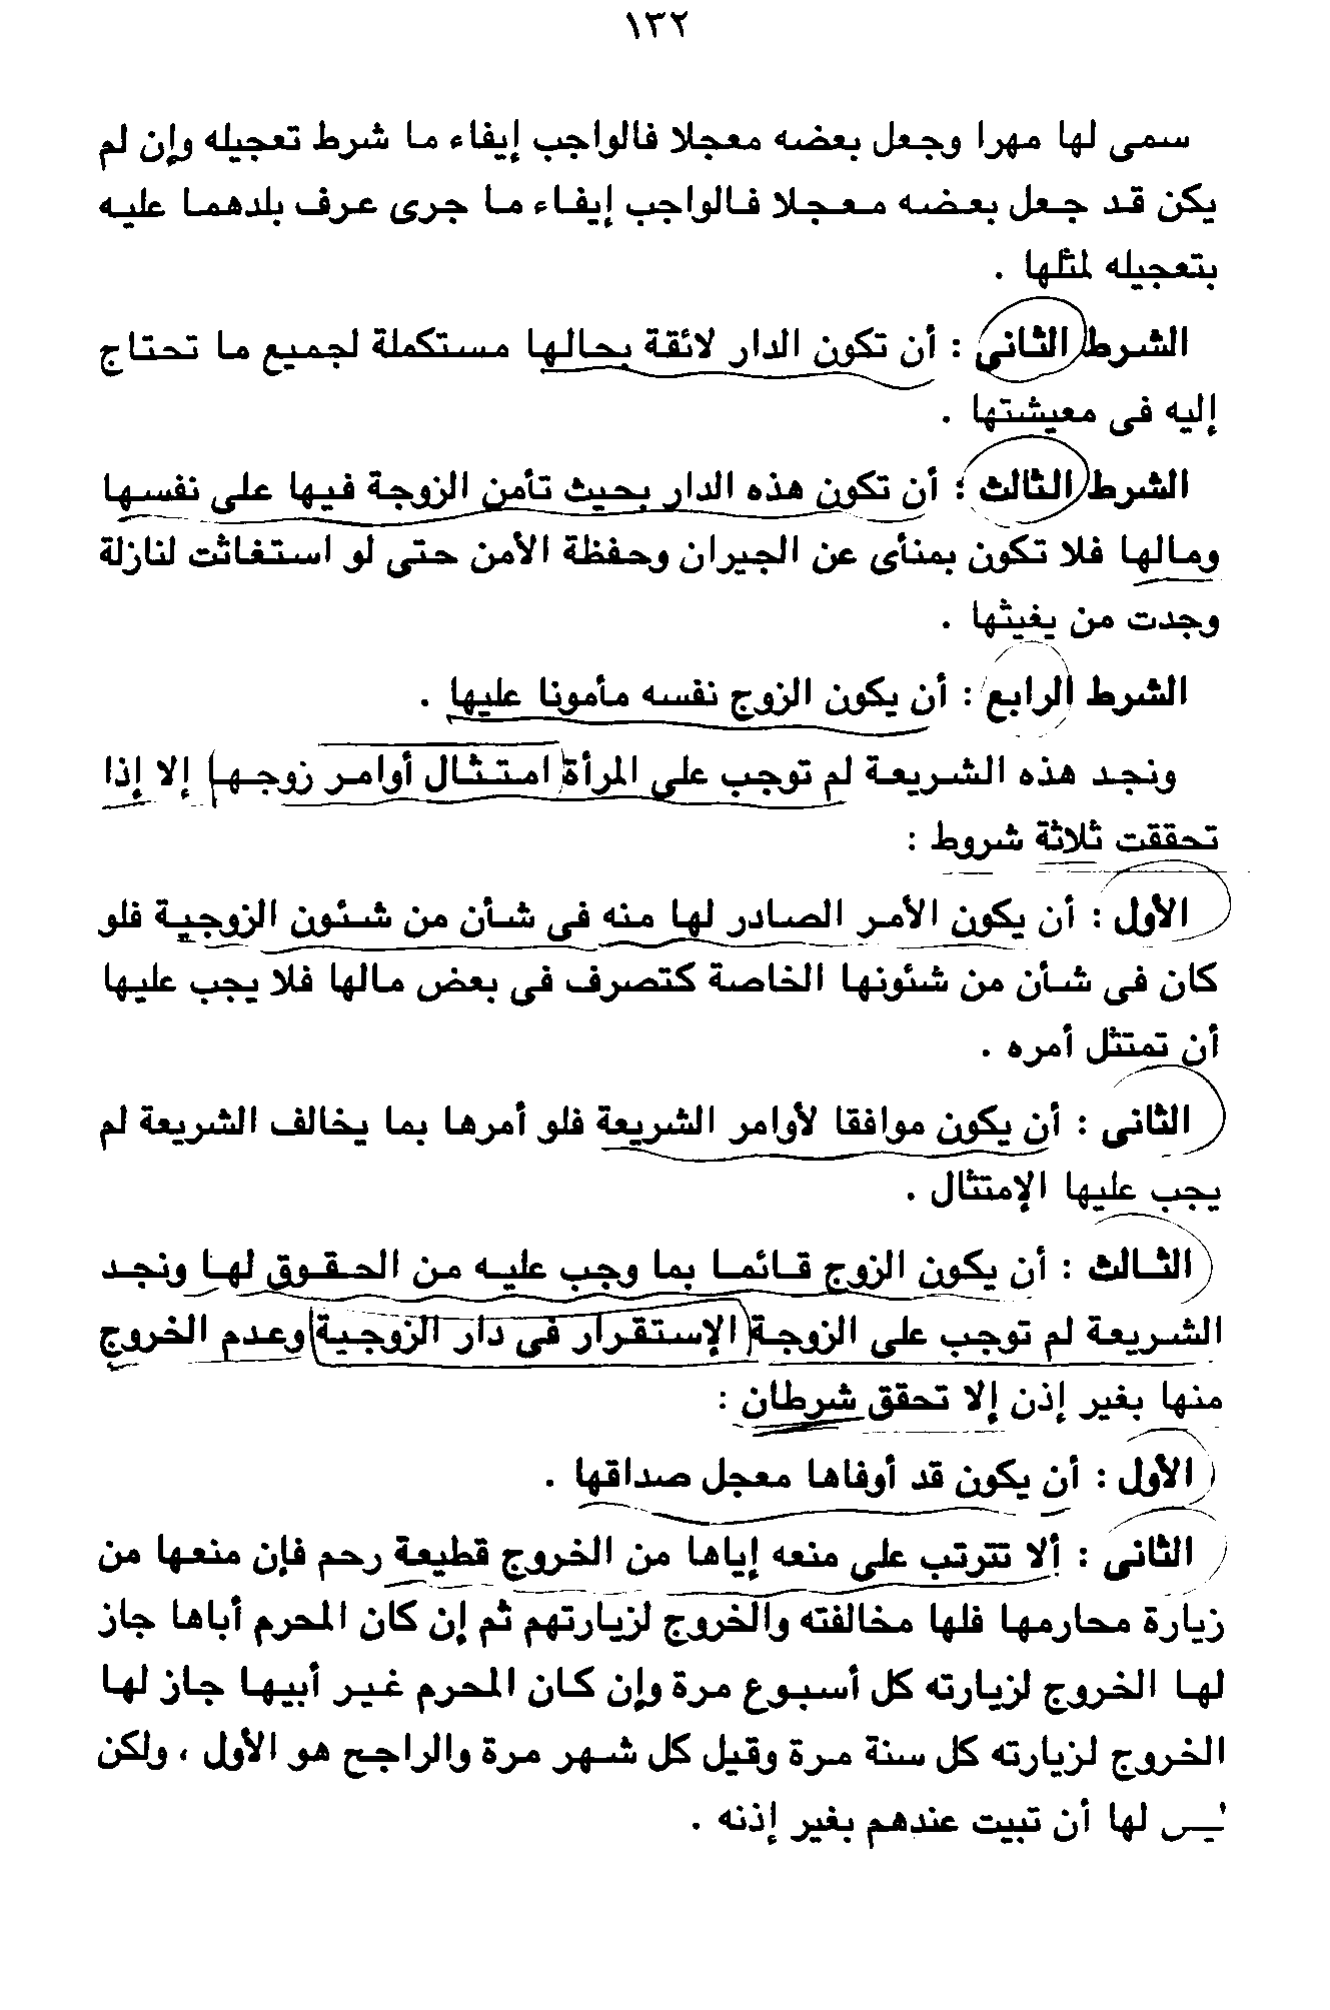 ١٣٢
سمى لها مهرا وجعل بعضه معجلا فالواجب إيفاء ما شرط تعجيله وإن لم
يكن قد جعل بعضه معجلا فالواجب إيفاء ما جرى عرف بلدهما عليه
بتعجيله لمثلها .
الشرط الثانى : أن تكون الدار لائقة بحالها مستكملة لجميع ما تحتاج
إليه فى معيشتها .
الشرط الثالث : أن تكون هذه الدار بحيث تأمن الزوجة فيها على نفسها
ومالها فلا تكون بمنأى عن الجيران وحفظة الأمن حتى لو استغاثت لنازلة
وجدت من يغيثها .
الشرط الرابع : أن يكون الزوج نفسه مأمونا عليها .
ونجد هذه الشريعة لم توجب على المرأة امتثال أوامر زوجها إلا إذا
تحققت ثلاثة شروط :
الأول : أن يكون الأمر الصادر لها منه فى شأن من شئون الزوجية فلو
كان فى شأن من شئونها الخاصة كتصرف فى بعض مالها فلا يجب عليها
أن تمتثل أمره .
الثانى : أن يكون موافقا لأوامر الشريعة فلو أمرها بما يخالف الشريعة لم
يجب عليها الإمتثال .
الثالث : أن يكون الزوج قائما بما وجب عليه من الحقوق لها ونجد
الشريعة لم توجب على الزوجة الإستقرار فى دار الزوجية وعدم الخروج
منها بغير إذن إلا تحقق شرطان :
الأول : أن يكون قد أوفاها معجل صداقها .
الثانى : ألا تترتب على منعه إياها من الخروج قطيعة رحم فإن منعها من
زيارة محارمها فلها مخالفته والخروج لزيارتهم ثم إن كان المحرم أباها جاز
لها الخروج لزيارته كل أسبوع مرة وإن كان المحرم غير أبيها جاز لها
الخروج لزيارته كل سنة مرة وقيل كل شهر مرة والراجح هو الأول ، ولكن
ليس لها أن تبيت عندهم بغير إذنه .